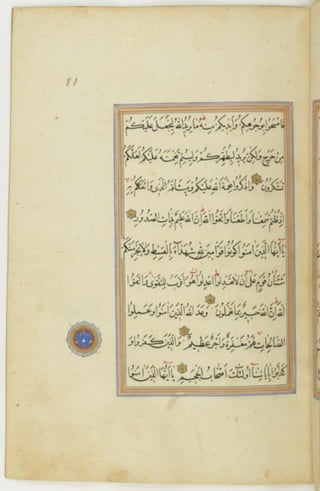 81
فَامْسَحُوا بِوُجُوهِكُمْ وَأَيْدِيكُمْ مِنْهُ مَا يُرِيدُ اللّٰهُ لِيَجْعَلَ عَلَيْكُمْ
مِنْ حَرَجٍ وَلٰكِنْ يُرِيدُ لِيُطَهِّرَكُمْ وَلِيُتِمَّ نِعْمَتَهُ عَلَيْكُمْ لَعَلَّكُمْ
تَشْكُرُونَ وَاذْكُرُوا نِعْمَةَ اللّٰهِ عَلَيْكُمْ وَمِيثَاقَهُ الَّذِي وَاثَقَكُمْ بِهِ
إِذْ قُلْتُمْ سَمِعْنَا وَأَطَعْنَا وَاتَّقُوا اللّٰهَ إِنَّ اللّٰهَ عَلِيمٌ بِذَاتِ الصُّدُورِ
يَا أَيُّهَا الَّذِينَ آمَنُوا كُونُوا قَوَّامِينَ لِلّٰهِ شُهَدَاءَ بِالْقِسْطِ وَلَا يَجْرِمَنَّكُمْ
شَنَآنُ قَوْمٍ عَلَى أَنْ لَا تَعْدِلُوا اعْدِلُوا هُوَ أَقْرَبُ لِلتَّقْوَى وَاتَّقُوا
اللّٰهَ إِنَّ اللّٰهَ خَبِيرٌ بِمَا تَعْمَلُونَ وَعَدَ اللّٰهُ الَّذِينَ آمَنُوا وَعَمِلُوا
الصَّالِحَاتِ لَهُمْ مَغْفِرَةٌ وَأَجْرٌ عَظِيمٌ وَالَّذِينَ كَفَرُوا وَ
كَذَّبُوا بِآيَاتِنَا أُولٰئِكَ أَصْحَابُ الْجَحِيمِ يَا أَيُّهَا الَّذِينَ آمَنُوا